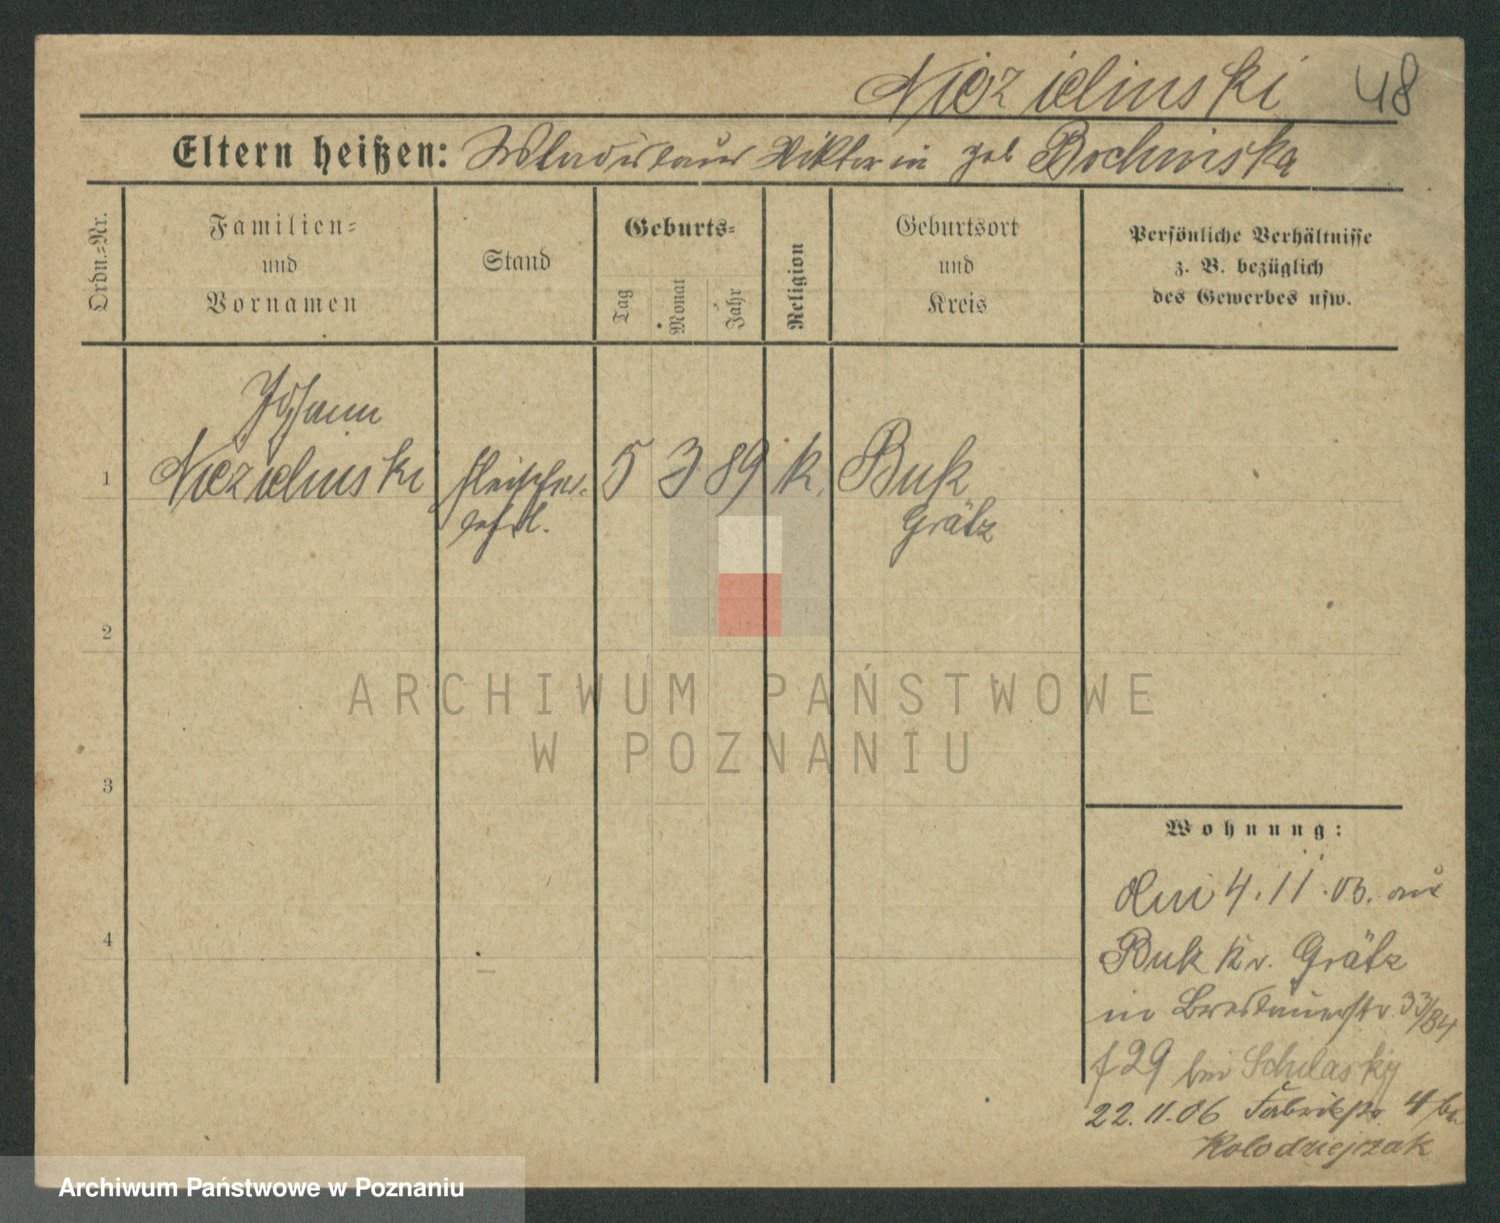 Niezielinski 48
Eltern heißen: Wladislaus Viktoria geb Bochinska
Ordn.=Nr.
Familien=
und
Vornamen
Stand
Geburts=
Tag
Monat
Jahr
Religion
Geburtsort
und
Kreis
Persönliche Verhältnisse
z. B. bezüglich
des Gewerbes usw.
Johann
1 Niezielinski Fleischer- 5 3 89 k. Buk
Grätz
2
3
4
Wohnung:
4.11.03. aus
Buk Kr. Grätz
in Breslauerstr. 33/34
bei
22.11.06 Fabrikstr. 4 bei
Kolodziejczak
ARCHIWUM PAŃSTWOWE
W POZNANIU
Archiwum Państwowe w Poznaniu